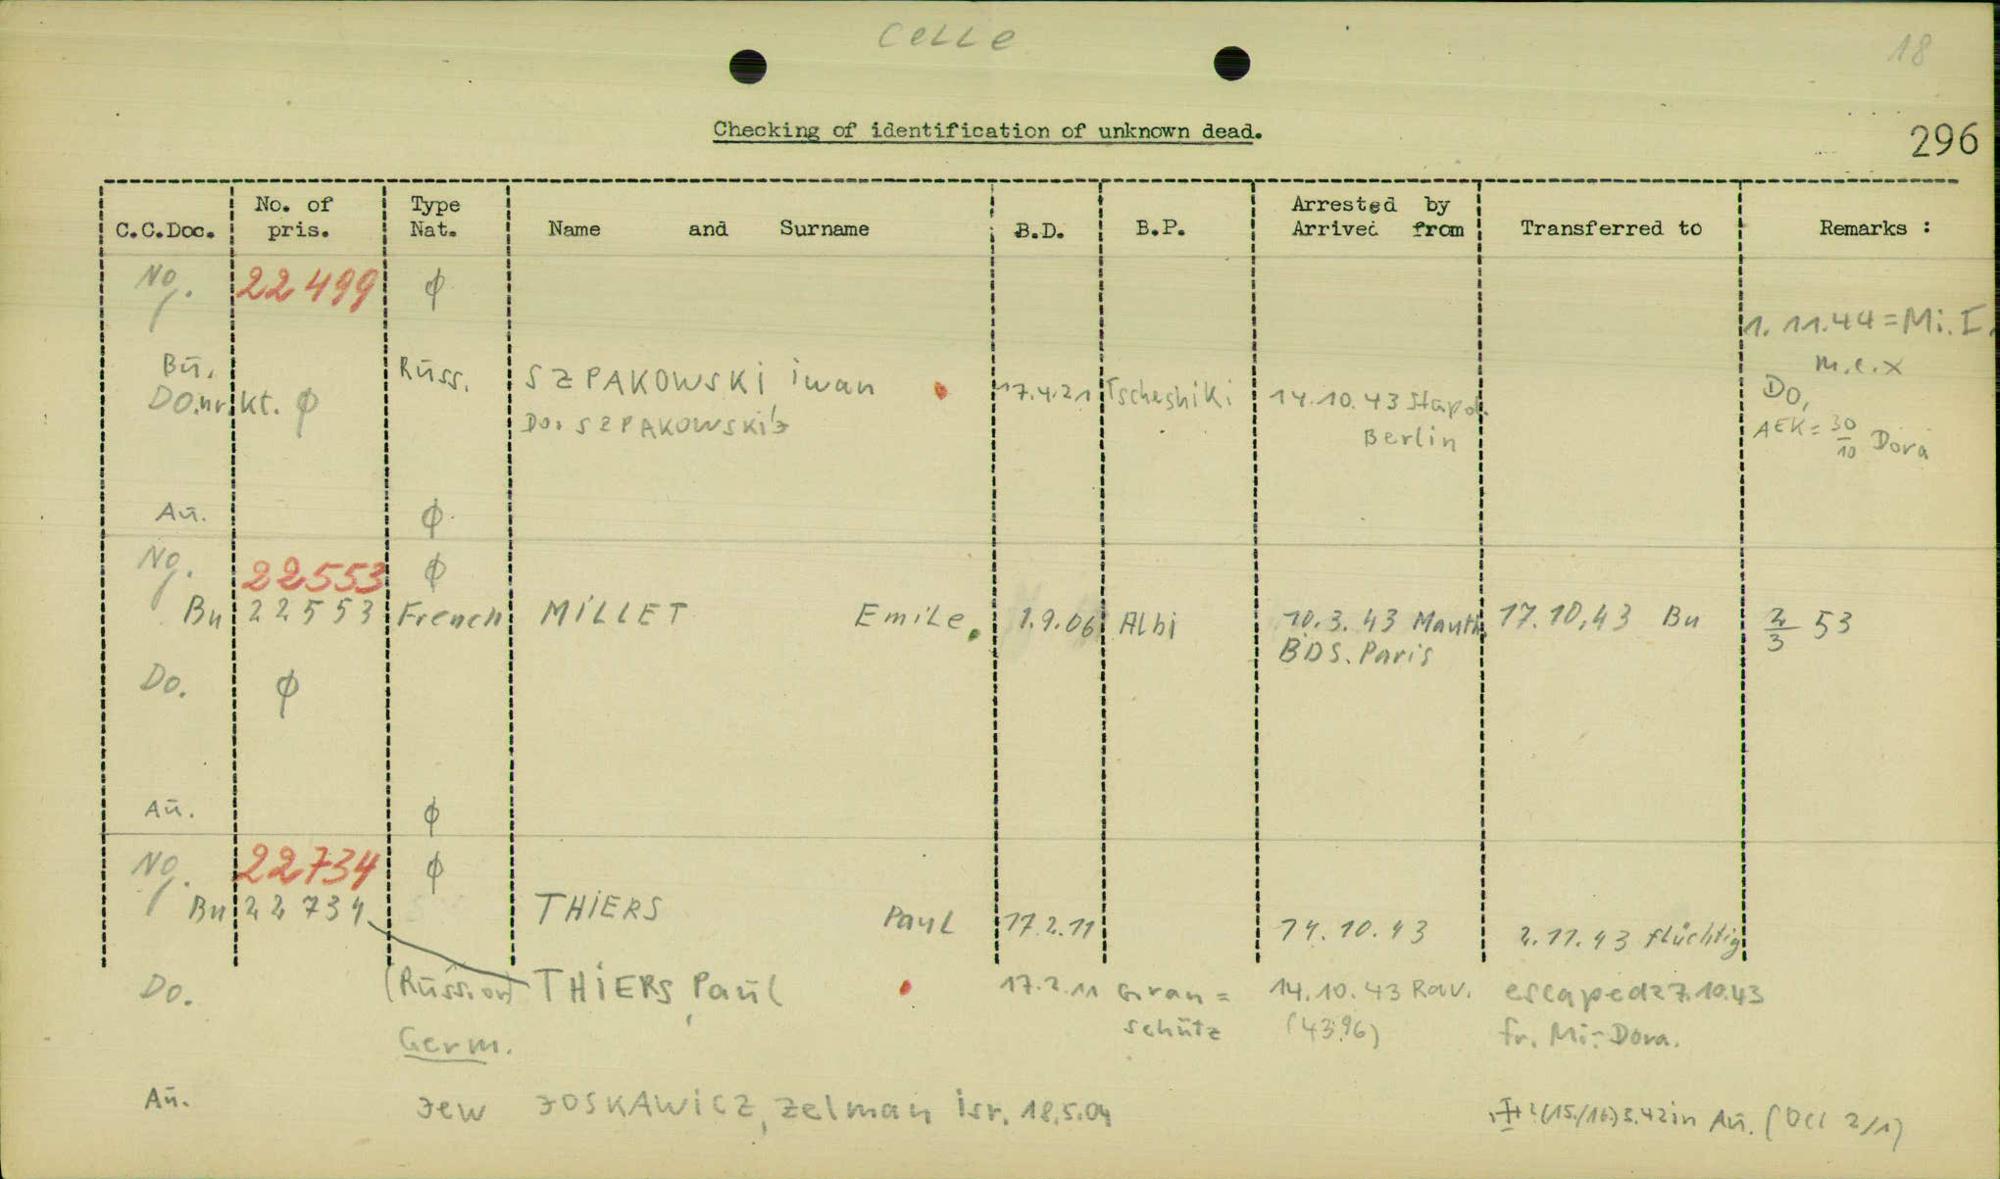 CeLLe
18
Checking of identification of unknown dead.
296
C.C.Doc. No. of pris. Type Nat. Name and Surname B.D. B.P. Arrested by Arrived from Transferred to Remarks :
Ng. 22499 ϕ
1. 11.44 = Mi. I.
m.e.x
Bū. Rūss. SZPAKOWSKI iwan 17.4.21 14.10.43 Stapo. Do,
Do.nr.kt. ϕ Do. SZPAKOWSKiJ Berlin AEK = 30/10 Dora
Aū. ϕ
Ng. 22553 ϕ
Bu 22553 French MiLLET EmiLe 1.9.06 Albi 10.3.43 Mauth. 17.10.43 Bu 2/3 53
BDS. Paris
Do. ϕ
Aū. ϕ
Ng. 22734 ϕ
Bu 22734 THiERS PauL 17.2.11 14.10.43 2.11.43 flüchtig
Do. (Rūssian) THiERS, Paūl 17.2.11 Gran= 14.10.43 Rav. escaped 27.10.43
Germ. schütz (4396) fr. Mi-Dora.
Aū. Jew JOSKAWiCZ, Zelman isr. 18.5.04 in Aū. (Occ 2/1)